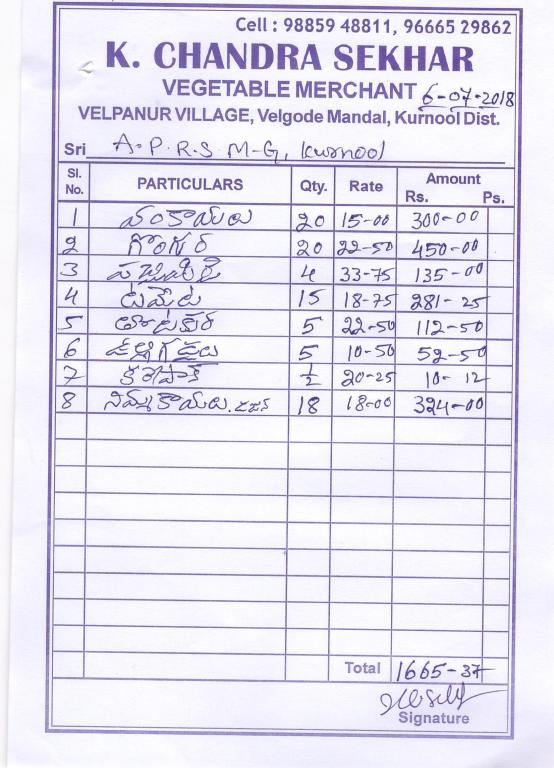 Cell : 98859 48811, 96665 29862
K. CHANDRA SEKHAR
VEGETABLE MERCHANT 6-07-2018
VELPANUR VILLAGE, Velgode Mandal, Kurnool Dist.
Sri A.P.R.S M-G, Kurnool
Sl. No. PARTICULARS Qty. Rate Amount Rs. Ps.
1 వంకాయలు 20 15-00 300-00
2 గోంగూర 20 22-50 450-00
3 పచ్చిమిర్చి 4 33-75 135-00
4 టమోట 15 18-75 281-25
5 తోటకూర 5 22-50 112-50
6 ఉల్లిగడ్డలు 5 10-50 52-50
7 కరేపాక్ 1/2 20-25 10-12
8 నిమ్మకాయలు 18 18-00 324-00
Total 1665-37
Signature